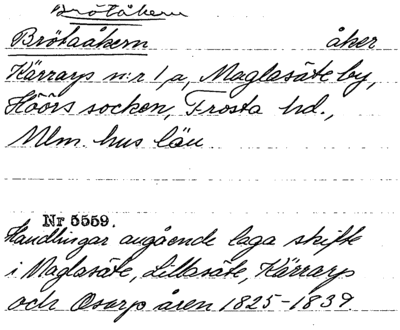 Brötåkern
Brötaåkern åker
Kärrarp n:r 1 a, Maglasäte by,
Höörs socken, Frosta hd.,
Mlm. hus län
Nr 5559.
Handlingar angående laga skifte
i Maglasäte, Lillasäte, Kärrarp
och Osarp åren 1825-1839.